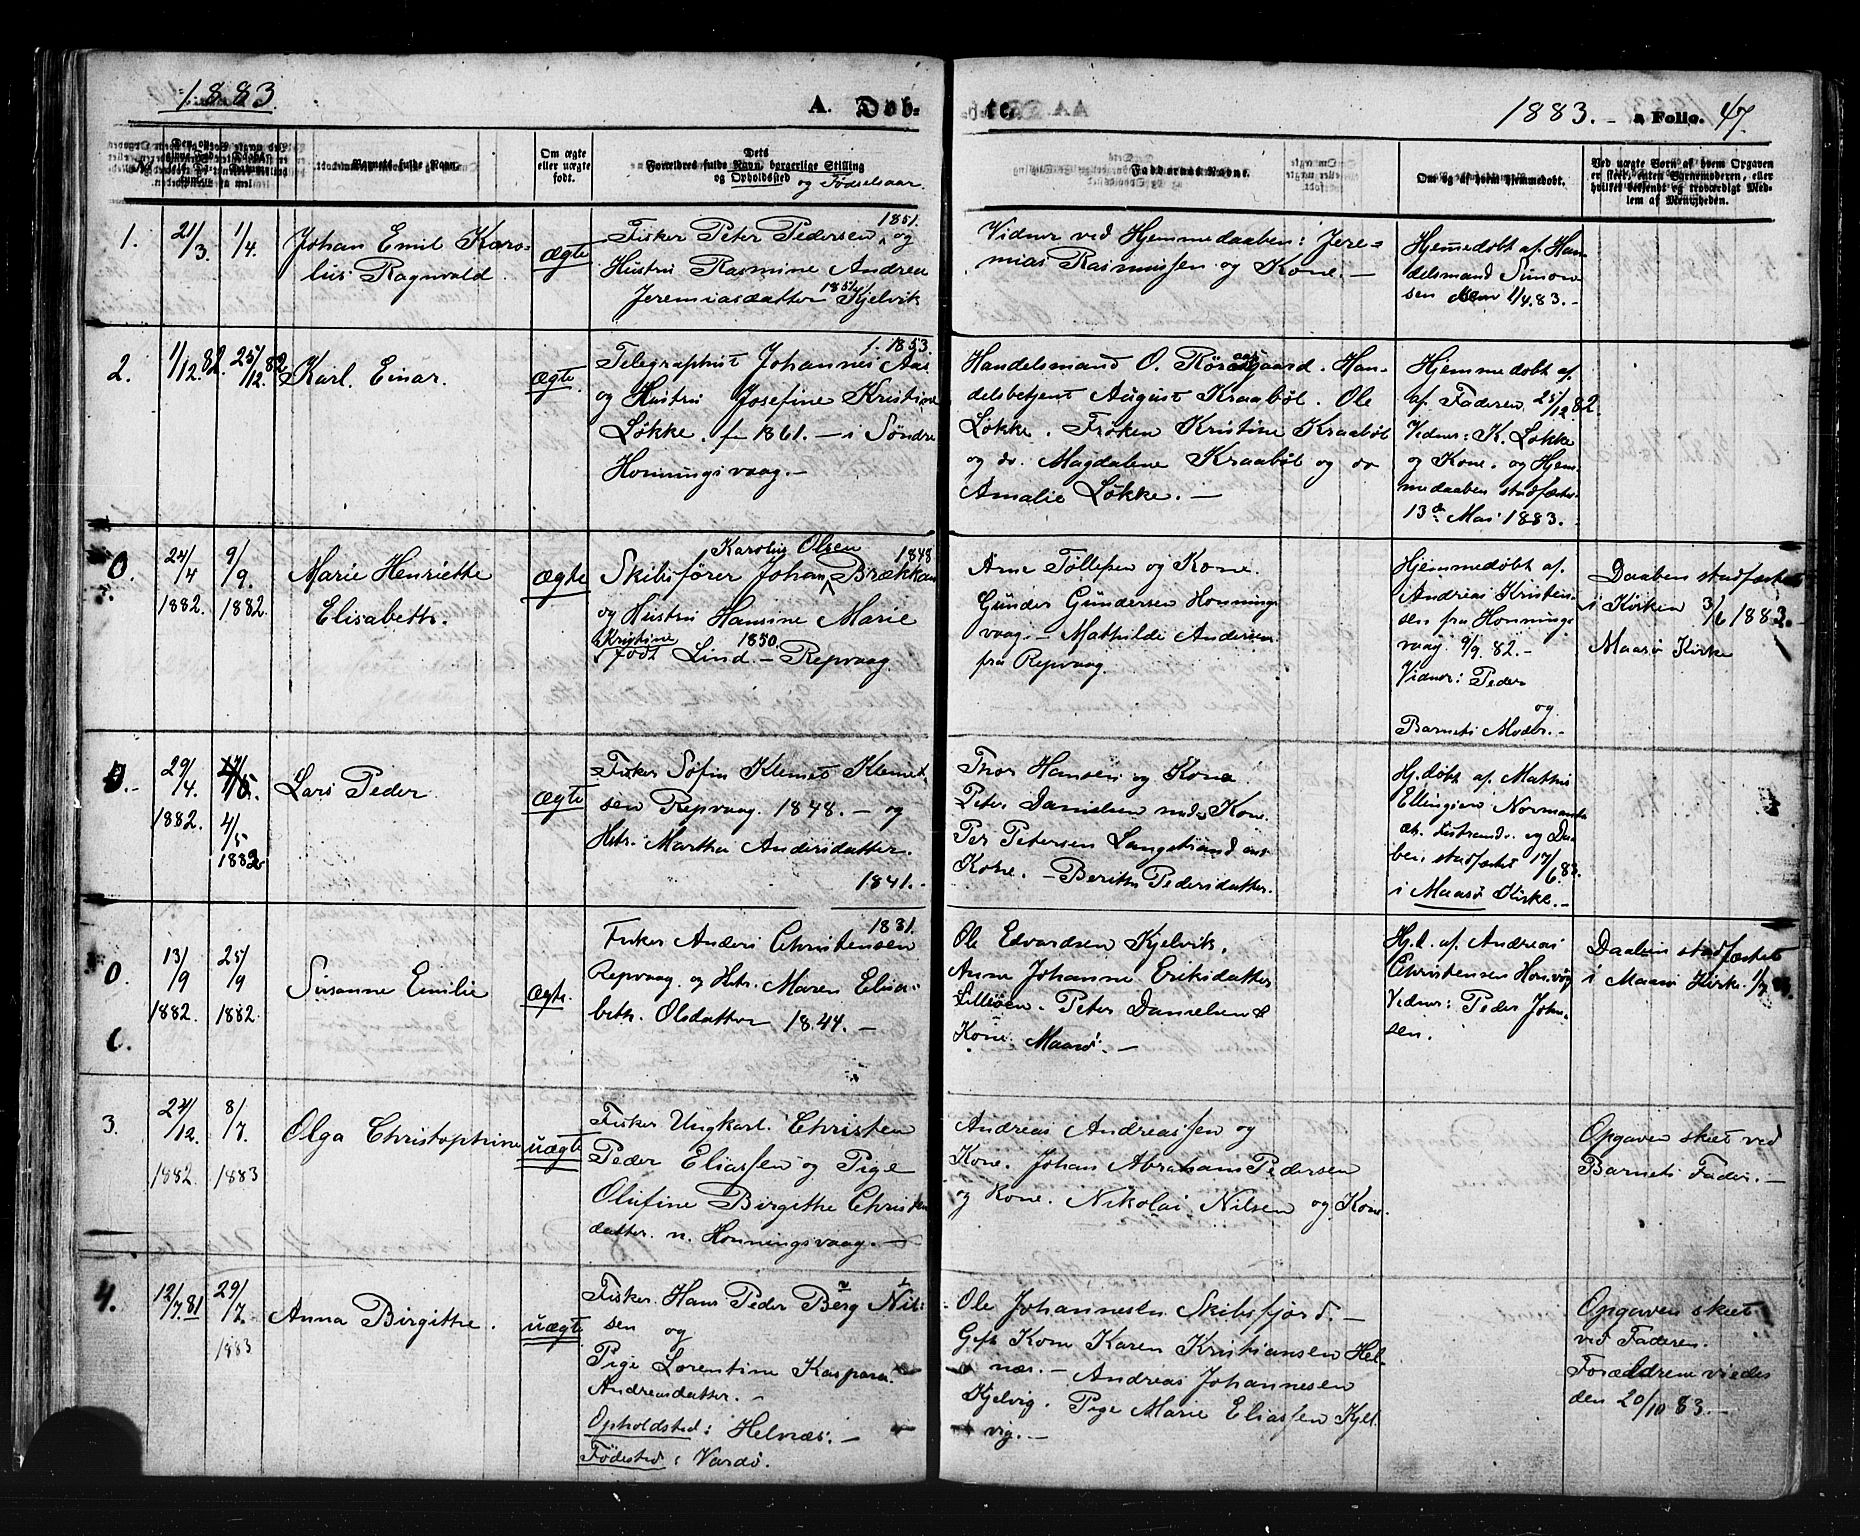 1883.
A. Døb-
te.
1883. - Folio. 47.
Barnets fulde Navn.
Om ægte
eller uægte
født.
Forældres fulde Navn, borgerlige Stilling
og Opholdssted
og Fødselsaar
Faddernes Navne.
Om og af hvem hjemmedøbt.
Ved uægte Børn af hvem Opgaven
er skeet, enten Barnemoderen, eller
hvilket bekjendt og troværdigt Med-
lem af Menigheden.
1.
21/3
1/4
Johan Emil Karo-
lus Ragnvald.
ægte
1851.
Fisker Peter Pedersen, og
Hustru Rasmine Andrea
Jeremiasdatter 1854 Kjelvik
Vidner ved Hjemmedaaben: Jere-
mias Rasmussen og Kone. -
Hjemmedøbt af Han-
delsmand Simon-
sen den 1/4.83. -
2.
1/12.82.
25/12.82
Karl. Einar.
ægte
f. 1853.
Telegraphist Johannes Aas
og Hustru Josefine Kristine
Løkke. f. 1861. - i Søndre
Honningsvaag. -
Handelsmand O. Rørasgaard. Han-
delsbetjent August Kraabøl. Ole
Løkke. Frøken Kristine Kraabøl
og do. Magdalene Kraabøl og do
Amalie Løkke. -
Hjemmedøbt af
af. Faderen 25/12 82.
Vidner: K. Løkke
og Kone. og Hjem-
medaaben stadfæstet
13de Mai 1883.
0.
24/4
1882.
9/9.
1882.
Marie Henriette
Elisabeth.
ægte
Karolius Olsen 1848
Skibsfører Johan Brækkan
og Hustru Hansine Marie
Kristine 1850.
født Lind - Repvaag
Arne Tollefsen og Kone.
Gunder Gundersen Honnings
vaag. - Mathilde Andersen
fra Repvaag.
Hjemmedøbt af.
Andreas Kristen-
sen fra Honnings
vaag 9/9. 82. -
Vidner: Peder
og
Barnets Moder. -
Daaben stadfæstet
i Kirken 3/6 1883. -
Maasø Kirke
0. -
29/4.
1882.
4/5
1882
Lars Peder
ægte
Fisker Sofin Klemet Klemet-
sen Repvaag. 1848. - og
Hstr. Martha Andersdatter.
1841. -
Thor Hansen og Kone
Peter Danielsen med Kone.
Per Petersen Langstrand og
Kone. - Berithe Pedersdatter.
Hj.døbt af Mathis
Ellingsen Normanset
og Daa-
ben stadfæstet 17/6.83.
i Maasø Kirke. -
0.
13/9
1882.
25/9
1882.
Susanne Emilie
ægte.
1831.
Fisker Anders Christensen
Repvaag og Hstr. Maren Elisa-
beth. Olsdatter 1844. -
Ole Edvardsen Kjelvik.
Anne Johanne Eriksdatter
Lilleøen. Peter Danielsen &
Kone. Maasø. -
Hj.d. af Andreas
Christensen Honvåg
Vidner: Peder John-
sen.
Daaben stadfæstet
i Maasø Kirke.
3.
24/12
1882.
8/7.
1883
Olga Christophine
uægte
Fisker Ungkarl. Christen
Peder Eliassen og Pige
Olufine Birgithe Christen
datter. n. Honningsvaag. -
Andreas Andreassen og
Kone. Johan Abraham Pedersen
og Kone. Nikolai Nilsen og Kone.
Opgaven skeet ved
Barnets Fader. -
4.
12/7.81
29/7.
1883
Anna Birgithe.
uægte
Fisker. Hans Peder Berg Nil-
sen og
Pige Lorentine Kaspara
Andreasdatter. -
Opholdsted: Helnæs. -
Fødested: Vardø.
Ole Johannesen Skibsfjord. -
Gift Kone Karen Kristiansen Hel-
næs. - Andreas Johannesen
Kjelvig. Pige Marie Eliassen Kjel-
vig. -
Opgaven skeet
ved Faderen.
Forældrene viedes
den 20/10 83. -